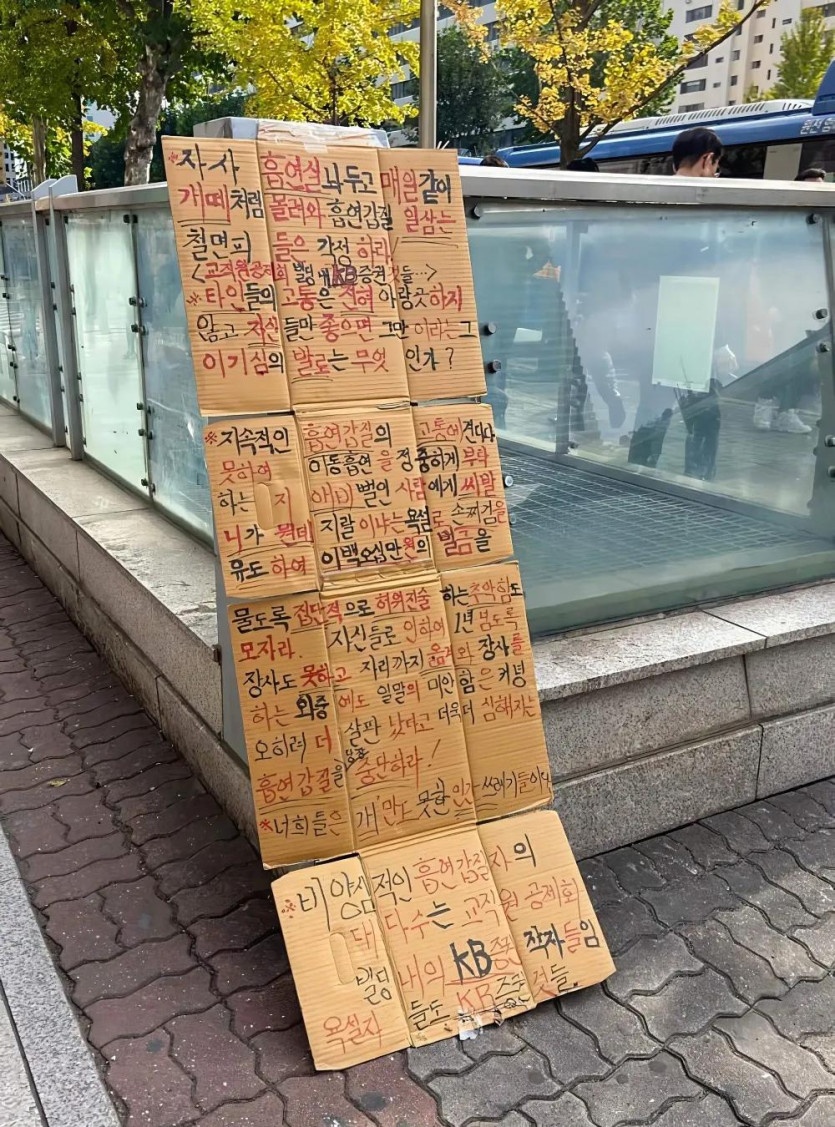 ※자사 흡연실 놔두고 매일같이
개떼처럼 몰려와 흡연갑질 일삼는
철면피들은 각성하라!
<교직원공제회 빌딩 내 KB증권 것들…>
※타인들의 고통은 전혀 아랑곳하지
않고 자신들만 좋으면 그만 이라는 그
이기심의 발로는 무엇인가?
※지속적인 흡연갑질의 고통에 견디다
못하여 이동흡연을 정중하게 부탁
하는 지 애비 뻘인 사람에게 씨발
니가 뭔데 지랄이냐는 욕설로 손찌검을
유도하여 이백오십만원의 벌금을
물도록 집단적으로 허위진술 하는 추악함도
모자라. 자신들로 인하여 1년 넘도록
장사도 못하고 자리까지 옮겨와 장사를
하는 와중에도 일말의 미안함은 커녕
오히려 더 살판 났다고 더욱더 심해지는
흡연갑질을 당장 중단하라!
※너희들은 개만도 못한 인간 쓰레기들이다
※비양심적인 흡연갑질자의
대다수는 교직원공제회
빌딩 내의 KB증권 작자들임
욕설자들도 KB증권 것들.